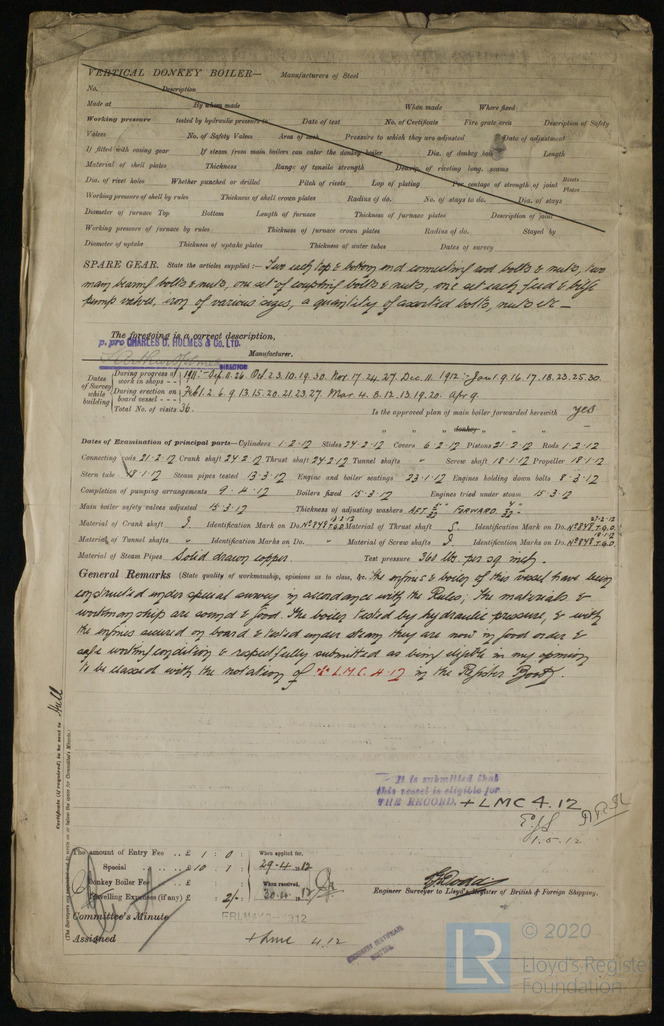 VERTICAL DONKEY BOILER— Manufacturers of Steel
No. Description
Made at By whom made When made Where fixed
Working pressure tested by hydraulic pressure to Date of test No. of Certificate Fire grate area Description of Safety
Valves No. of Safety Valves Area of each Pressure to which they are adjusted Date of adjustment
If fitted with easing gear If steam from main boilers can enter the donkey boiler Dia. of donkey boiler Length
Material of shell plates Thickness Range of tensile strength Descrip. of riveting long. seams
Dia. of rivet holes Whether punched or drilled Pitch of rivets Lap of plating Per centage of strength of joint Rivets Plates
Working pressure of shell by rules Thickness of shell crown plates Radius of do. No. of stays to do. Dia. of stays
Diameter of furnace Top Bottom Length of furnace Thickness of furnace plates Description of joint
Working pressure of furnace by rules Thickness of furnace crown plates Radius of do. Stayed by
Diameter of uptake Thickness of uptake plates Thickness of water tubes Dates of survey
SPARE GEAR. State the articles supplied:— Two each top & bottom end connecting rod bolts & nuts, two
main bearing bolts & nuts, one set of coupling bolts & nuts, one set each feed & bilge
pump valves, iron of various sizes, a quantity of assorted bolts, nuts &c —
The foregoing is a correct description,
p. pro CHARLES D. HOLMES & Co. LTD.
Manufacturer.
DIRECTOR
Dates of Survey while building
During progress of work in shops - - 1911:- Sep. 11. 26. Oct 2. 3. 10. 19. 30. Nov. 17. 24. 27. Dec. 11. 1912:- Jan 1. 9. 16. 17. 18. 23. 25. 30.
During erection on board vessel - - - Feb 1. 2. 6. 9. 13. 15. 20. 21. 23. 27. Mar. 4. 8. 12. 13. 19. 20. Apr 9.
Total No. of visits 36. Is the approved plan of main boiler forwarded herewith yes
" " " donkey " " "
Dates of Examination of principal parts—Cylinders 1.2.12 Slides 24.2.12 Covers 6.2.12 Pistons 21.2.12 Rods 1.2.12
Connecting rods 21.2.12 Crank shaft 24.2.12 Thrust shaft 24.2.12 Tunnel shafts " Screw shaft 18.1.12 Propeller 18.1.12
Stern tube 18.1.12 Steam pipes tested 13.3.12 Engine and boiler seatings 23.1.12 Engines holding down bolts 8.3.12
Completion of pumping arrangements 9.4.12 Boilers fixed 15.3.12 Engines tried under steam 15.3.12
Main boiler safety valves adjusted 15.3.12 Thickness of adjusting washers AFT FORWARD
Material of Crank shaft S. Identification Mark on Do. Nº 848 T.G.D. Material of Thrust shaft S. Identification Mark on Do. Nº 848 T.G.D. 27.2.12
Material of Tunnel shafts " Identification Marks on Do. " Material of Screw shafts Identification Marks on Do. Nº 848 T.G.D. 18.1.12
Material of Steam Pipes Solid drawn copper. Test pressure 360 lbs. per sq. inch.
General Remarks (State quality of workmanship, opinions as to class, &c. The engines & boiler of this vessel have been
constructed under special survey in accordance with the Rules; The materials &
workmanship are sound & good. The boiler tested by hydraulic pressure, & with
the engines secured on board & tested under steam they are now in good order &
safe working condition & respectfully submitted as being eligible in my opinion
to be classed with the notation of + L.M.C. 4.12 in the Register Book.
Certificate (if required) to be sent to Hull
(The Surveyors are requested not to write on or below the space for Committee's Minute.)
It is submitted that
this vessel is eligible for
THE RECORD. + LMC 4.12
1.5.12
The amount of Entry Fee .. £ 1 : 0 : When applied for,
Special .. £ 10 : 1 : 29.4.12
Donkey Boiler Fee .. £ : : When received,
Travelling Expenses (if any) £ : 2/- 30.4.12
Engineer Surveyor to Lloyd's Register of British & Foreign Shipping.
Committee's Minute FRI. MAY 3 1912
Assigned + LMC 4.12
© 2020
LR
Lloyd's Register
Foundation